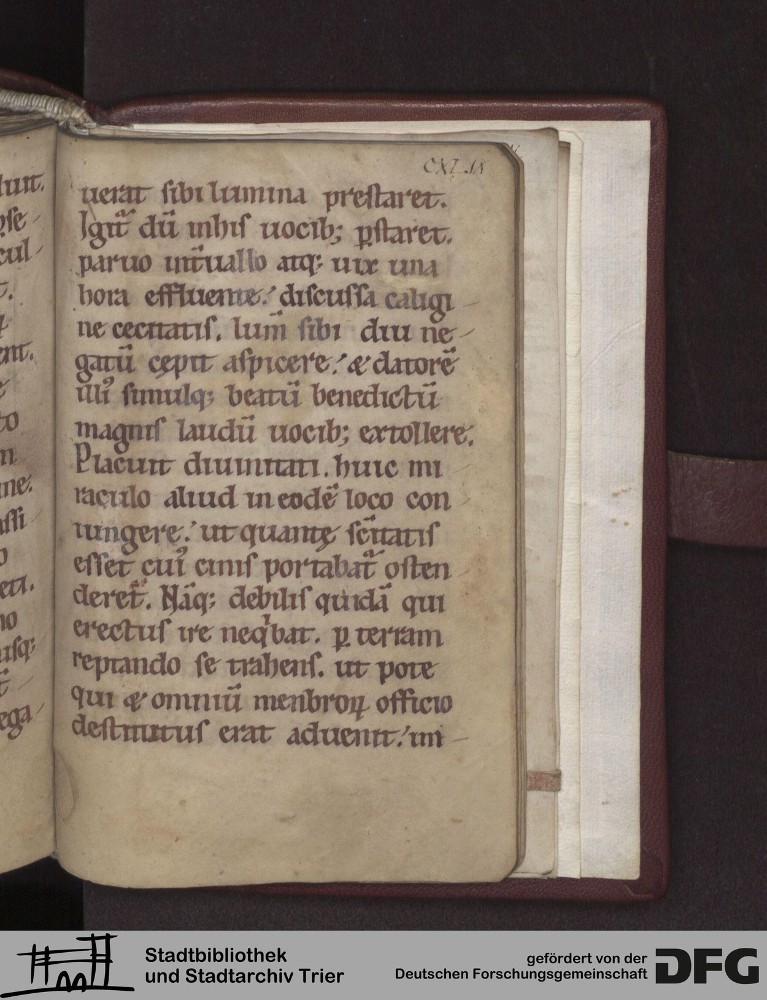 CXLIX
uerat sibi lumina prestaret.
Igit̄ dū inhis uocib; p̄staret.
paruo int̄uallo atq; uix una
hora effluente. discussa caligi
ne cecitatis. lum̄ sibi diu ne
gatū cępit aspicere. & datorē
illi᾽ simulq; beatū benedictū
magnis laudū uocib; extollere.
Placuit diuinitati. huic mi
raculo aliud in eodē loco con
iungere. ut quantę sc̄itatis
esset cui᾽ cinis portabat̄ osten
deret̄. Nāq; debilis quidā qui
erectus ire neq͛bat. ꝑ terram
reptando se trahens. ut pote
qui & omniū menbroꝝ officio
destitutus erat aduenit. im
luit.
cul
ent.
to
ega
Stadtbibliothek
und Stadtarchiv Trier
gefördert von der
Deutschen Forschungsgemeinschaft
DFG